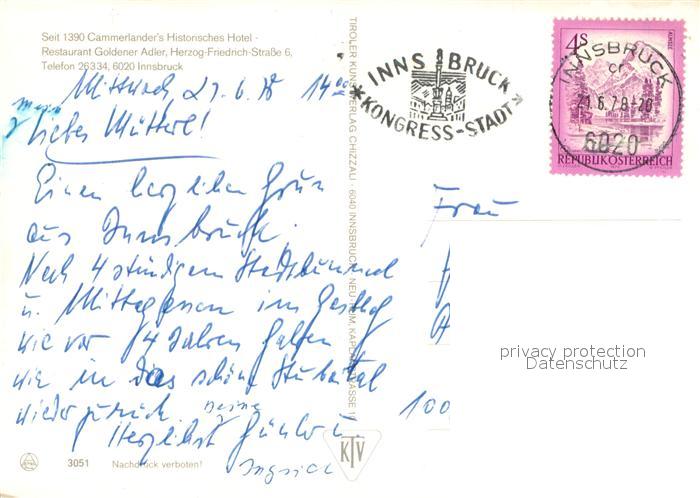 Seit 1390 Cammerlander's Historisches Hotel -
Restaurant Goldener Adler, Herzog-Friedrich-Straße 6,
Telefon 26334, 6020 Innsbruck
Mittwoch 21.6.78 14 00
mein
Liebes Mutterl!
Einen herzlichen Gruß
aus Innsbruck.
Nach 4 stündigem Stadtbummel
u. Mittagessen im Gasthof
wie vor 14 Jahren fahren
wir in das schöne Stubaital
wieder zurück.
Herzlichst Deine
Ingrid
TIROLER KUNSTVERLAG CHIZZALI · 6040 INNSBRUCK-NEU-RUM, KAPLANSTRASSE
INNSBRUCK
*KONGRESS-STADT*
4 S
ALMSEE
INNSBRUCK
21.6.78-20
6020
REPUBLIK ÖSTERREICH
Frau
100
privacy protection
Datenschutz
KTV
3051 Nachdruck verboten!